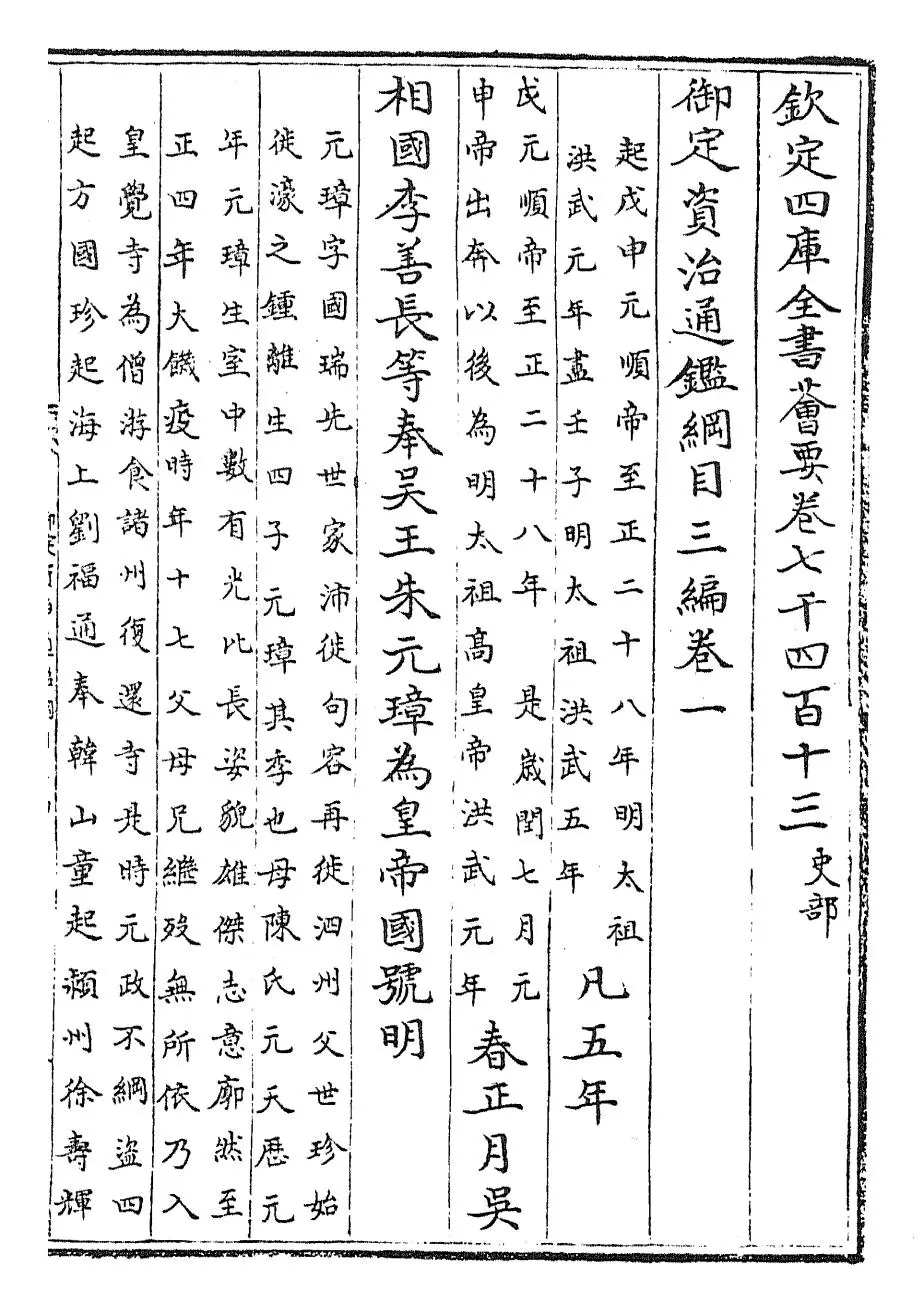 欽定四庫全書薈要卷七千四百十三 史部
御定資治通鑑綱目三編卷一
起戊申元順帝至正二十八年明太祖
洪武元年盡壬子明太祖洪武五年
凡五年
戊元順帝至正二十八年 是歲閏七月元
申帝出奔以後為明太祖高皇帝洪武元年
春正月吳
相國李善長等奉吳王朱元璋為皇帝國號明
元璋字國瑞先世家沛徙句容再徙泗州父世珍始
徙濠之鍾離生四子元璋其季也母陳氏元天厯元
年元璋生室中數有光比長姿貌雄傑志意廓然至
正四年大饑疫時年十七父母兄繼歿無所依乃入
皇覺寺為僧游食諸州復還寺是時元政不綱盜四
起方國珍起海上劉福通奉韓山童起潁州徐壽輝